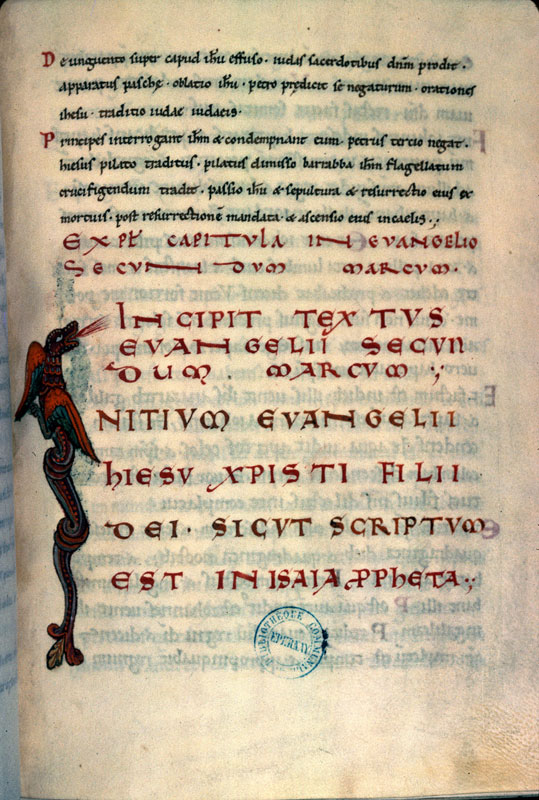 De unguento super capud ihu effuso. iudas sacerdotibus dnm prodit.
apparatus paschę. oblatio ihu. petro prędicit se negaturum. orationes
ihesu. traditio iudae iudaeis.
Principes interrogant ihm & condempnant eum. petrus tercio negat.
hiesus pilato traditus. pilatus dimisso barrabba ihm flagellatum
crucifigendum tradit. passio ihu & sepultura & resurrectio eius ex
mortuis. post resurrectionē mandata. & ascensio eius in caelis.
EXPŁ CAPITULA IN EVANGELIO
SECUNDUM MARCUM.
INCIPIT TEXTUS
EVANGELII SECUN
DUM. MARCUM
INITIUM EVANGELII
HIESU XPISTI FILII
DEI. SICUT SCRIPTUM
EST IN ISAIA PPHETA
BIBLIOTHEQUE COMMUNALE
EPERNAY